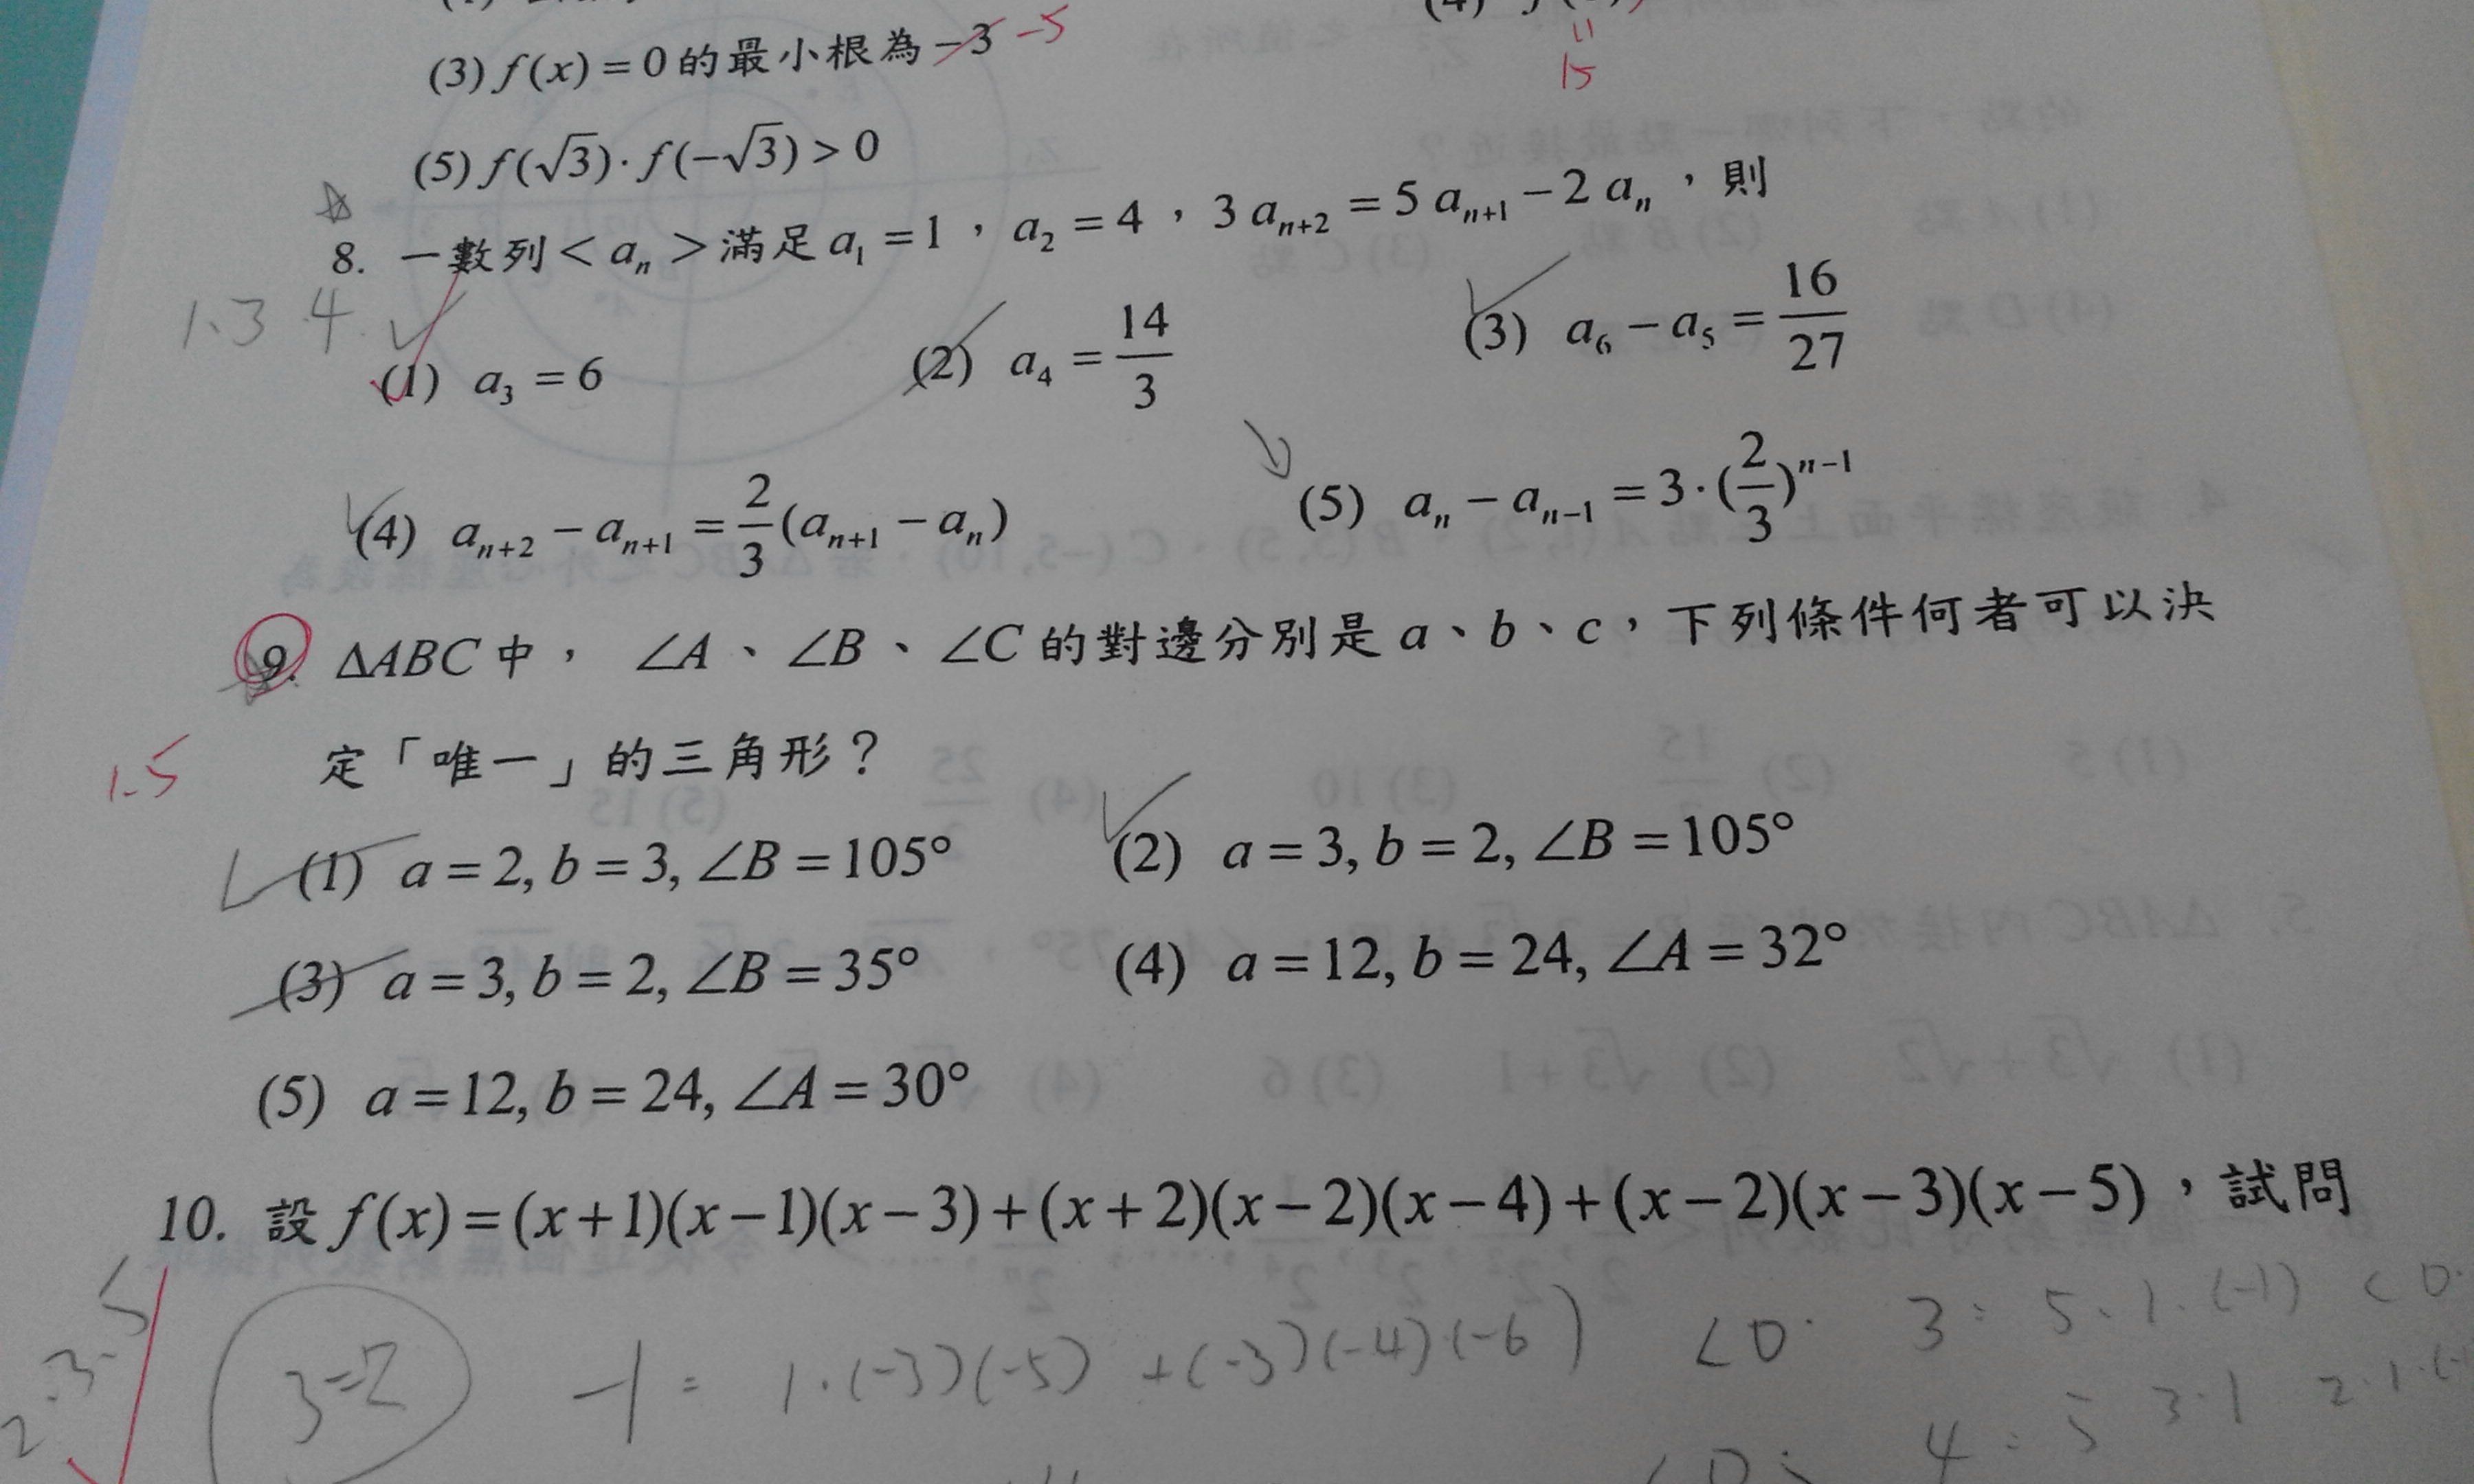 (3) f(x) = 0 的最小根為 -3 -5
15
(5) f(√3)·f(-√3) > 0
8. 一數列 < aₙ > 滿足 a₁ = 1 , a₂ = 4 , 3 aₙ₊₂ = 5 aₙ₊₁ - 2 aₙ , 則
1. 3 4.
(1) a₃ = 6 (2) a₄ = 14/3 (3) a₆ - a₅ = 16/27
(4) aₙ₊₂ - aₙ₊₁ = 2/3 (aₙ₊₁ - aₙ) (5) aₙ - aₙ₋₁ = 3·(2/3)ⁿ⁻¹
9. ΔABC 中, ∠A、∠B、∠C 的對邊分別是 a、b、c,下列條件何者可以決
定「唯一」的三角形?
1.5
(1) a = 2, b = 3, ∠B = 105° (2) a = 3, b = 2, ∠B = 105°
(3) a = 3, b = 2, ∠B = 35° (4) a = 12, b = 24, ∠A = 32°
(5) a = 12, b = 24, ∠A = 30°
10. 設 f(x) = (x+1)(x-1)(x-3) + (x+2)(x-2)(x-4) + (x-2)(x-3)(x-5) , 試問
2.3.5
3=2 -1 = 1·(-3)(-5) +(-3)(-4)(-6) <0. 3: 5·1·(-1) <0.
4: 5 3·1 2·1·(-